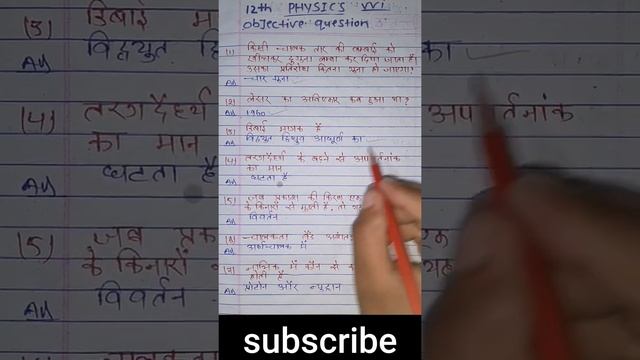 12th PHYSICS VVI
objective question
(1) किसी चालक तार की लम्बाई को
खींचकर दुगुना लम्बा कर दिया जाता है।
उसका प्रतिरोध कितना गुना हो जाएगा?
Ans चार गुना
(2) लेसर का आविष्कार कब हुआ था?
Ans 1960
(3) डिबाई मात्रक है
Ans विद्युत द्विध्रुव आघूर्ण का
(4) तरंगदैर्ध्य के बढ़ने से अपवर्तनांक
का मान
Ans घटता है
(5) जब प्रकाश की किरण
के किनारों से मुड़ती है, तो
Ans विवर्तन
(6) चालकता
Ans अर्धचालक में
(7) नाभिक में कौन से
होती है
Ans प्रोटॉन और न्यूट्रान
subscribe